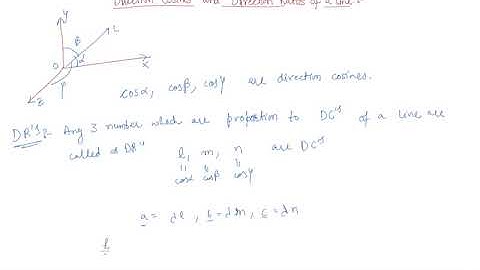 Direction Cosines and Direction Ratios of a line:
Y
L
β
α
O
X
γ
Z
cosα, cosβ, cosγ are direction cosines.
DR's:- Any 3 number which are proportion to DC's of a line are
called a DR's
l, m, n are DC's
cosα cosβ cosγ
a = λl, b = λm, c = λn
l